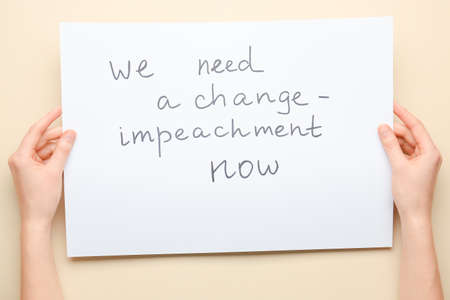 We need
a change -
impeachment
now